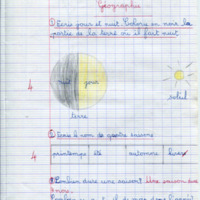 Géographie
① Ecris jour et nuit. Colorie en noir la
partie de la terre où il fait nuit
nuit jour
4
soleil
terre
② Ecris le nom de quatre saisons
4
printemps été automne hiver
③ Combien dure une saison? Une saison dure
3 mois